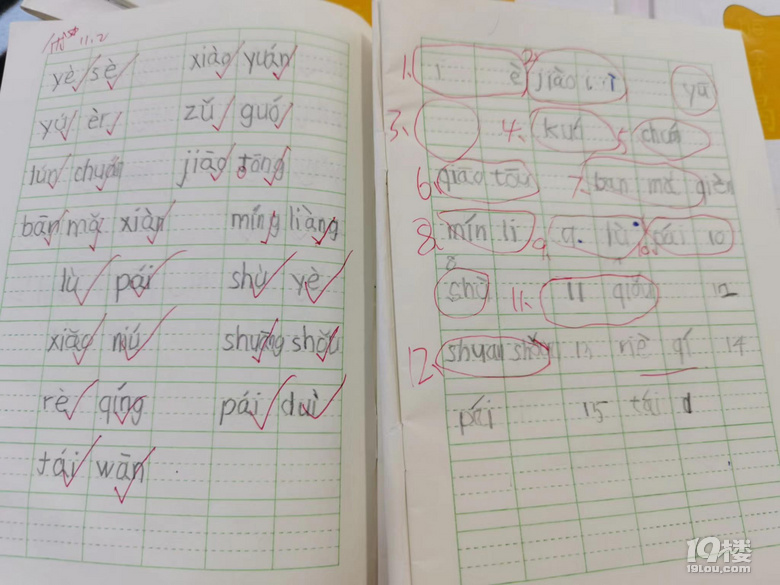 优 11.2
yè sè xiàg yuán
yú èr zǔ guó
lún chuán jiāg tōng
bān mǎ xiàn míng liàng
lù pái shù yè
xiǎg niú shuāng shǒu
rè qíng pái duì
tái wān
1、 è 2、 jiāo yú
3、 4、 kuó 5、 chuán
6、 qiáo tōu 7、 ban mǎ
8、 mín li 9、 lù pái 10
8 shù 11、 11 12
12、 shuan 13 riè qí 14
pái 15 tái d
19楼
19lou.com